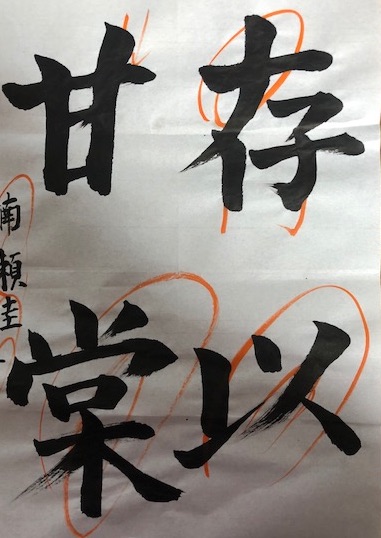 存以
甘棠
南頼圭